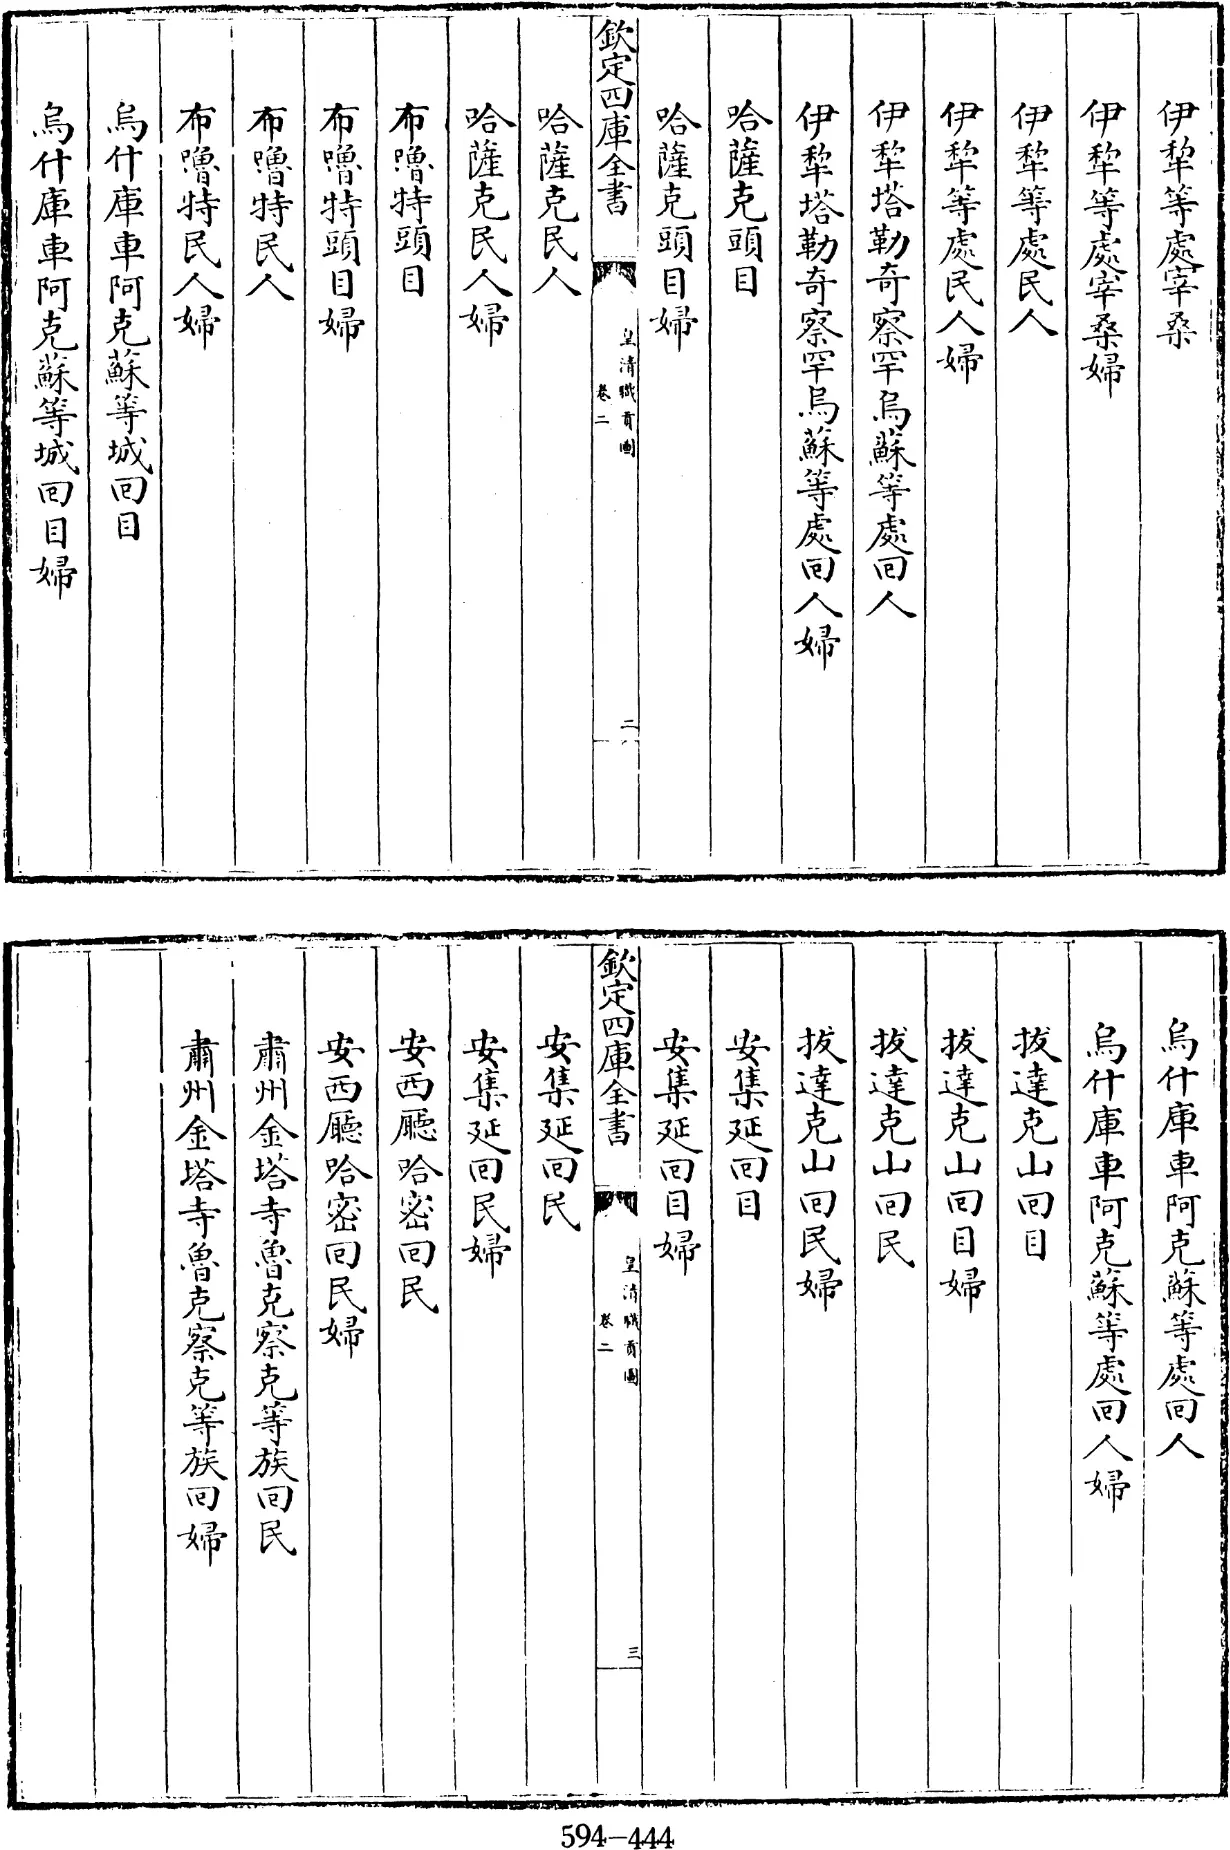 伊犂等處宰桑
伊犂等處宰桑婦
伊犂等處民人
伊犂等處民人婦
伊犂塔勒奇察罕烏蘇等處回人
伊犂塔勒奇察罕烏蘇等處回人婦
哈薩克頭目
哈薩克頭目婦
欽定四庫全書
皇清職貢圖
卷二
二
哈薩克民人
哈薩克民人婦
布嚕特頭目
布嚕特頭目婦
布嚕特民人
布嚕特民人婦
烏什庫車阿克蘇等城回目
烏什庫車阿克蘇等城回目婦
烏什庫車阿克蘇等處回人
烏什庫車阿克蘇等處回人婦
拔達克山回目
拔達克山回目婦
拔達克山回民
拔達克山回民婦
安集延回目
安集延回目婦
欽定四庫全書
皇清職貢圖
卷二
三
安集延回民
安集延回民婦
安西廳哈密回民
安西廳哈密回民婦
肅州金塔寺魯克察克等族回民
肅州金塔寺魯克察克等族回婦
594-444